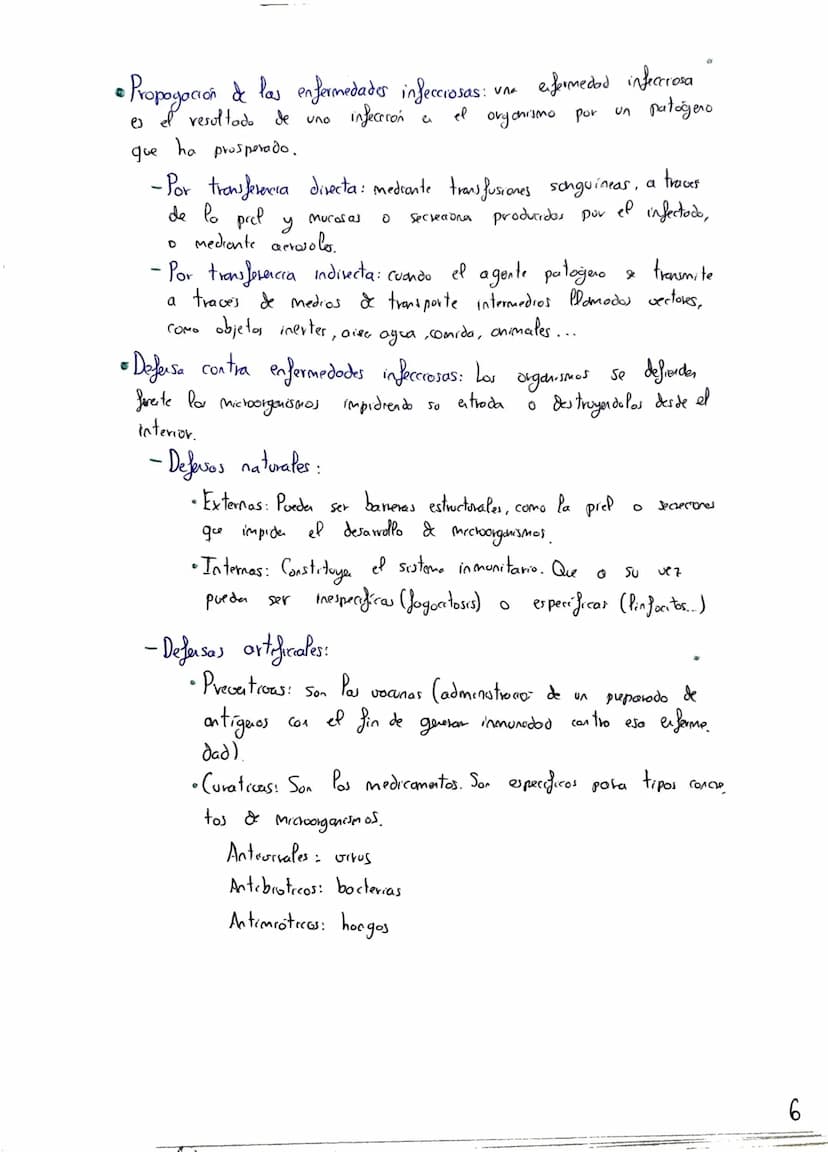 • Propagación de las enfermedades infecciosas: una enfermedad infecciosa
es el resultado de una infección en el organismo por un patógeno
que ha prosperado.
- Por transferencia directa: mediante transfusiones sanguíneas, a traves
de la piel y mucosas o secreciones producidas por el infectado,
o mediante aerosoles.
- Por transferencia indirecta: cuando el agente patogeno se transmite
a traves de medios de transporte intermedios llamados vectores,
como objetos inertes, aire agua, comida, animales...
• Defensa contra enfermedades infecciosas: Los organismos se defienden
frente los microorganismos impidiendo su entrada o destruyendolos desde el
interior.
- Defensas naturales:
• Externas: Pueden ser barreras estructurales, como la piel o secreciones
que impiden el desarrollo de microorganismos.
• Internas: Constituyen el sistema inmunitario. Que a su vez
pueden ser inespecíficas (fagocitosis) o específicas (linfocitos...)
- Defensas artificiales:
• Preventivas: son las vacunas (administracion de un preparado de
antígenos con el fin de generar inmunidad contra esa enferme.
dad).
• Curativas: Son los medicamentos. Son específicos para tipos concre.
tos de microorganismos.
Antivirales: virus
Antibioticos: bacterias
Antimicóticos: hongos
6